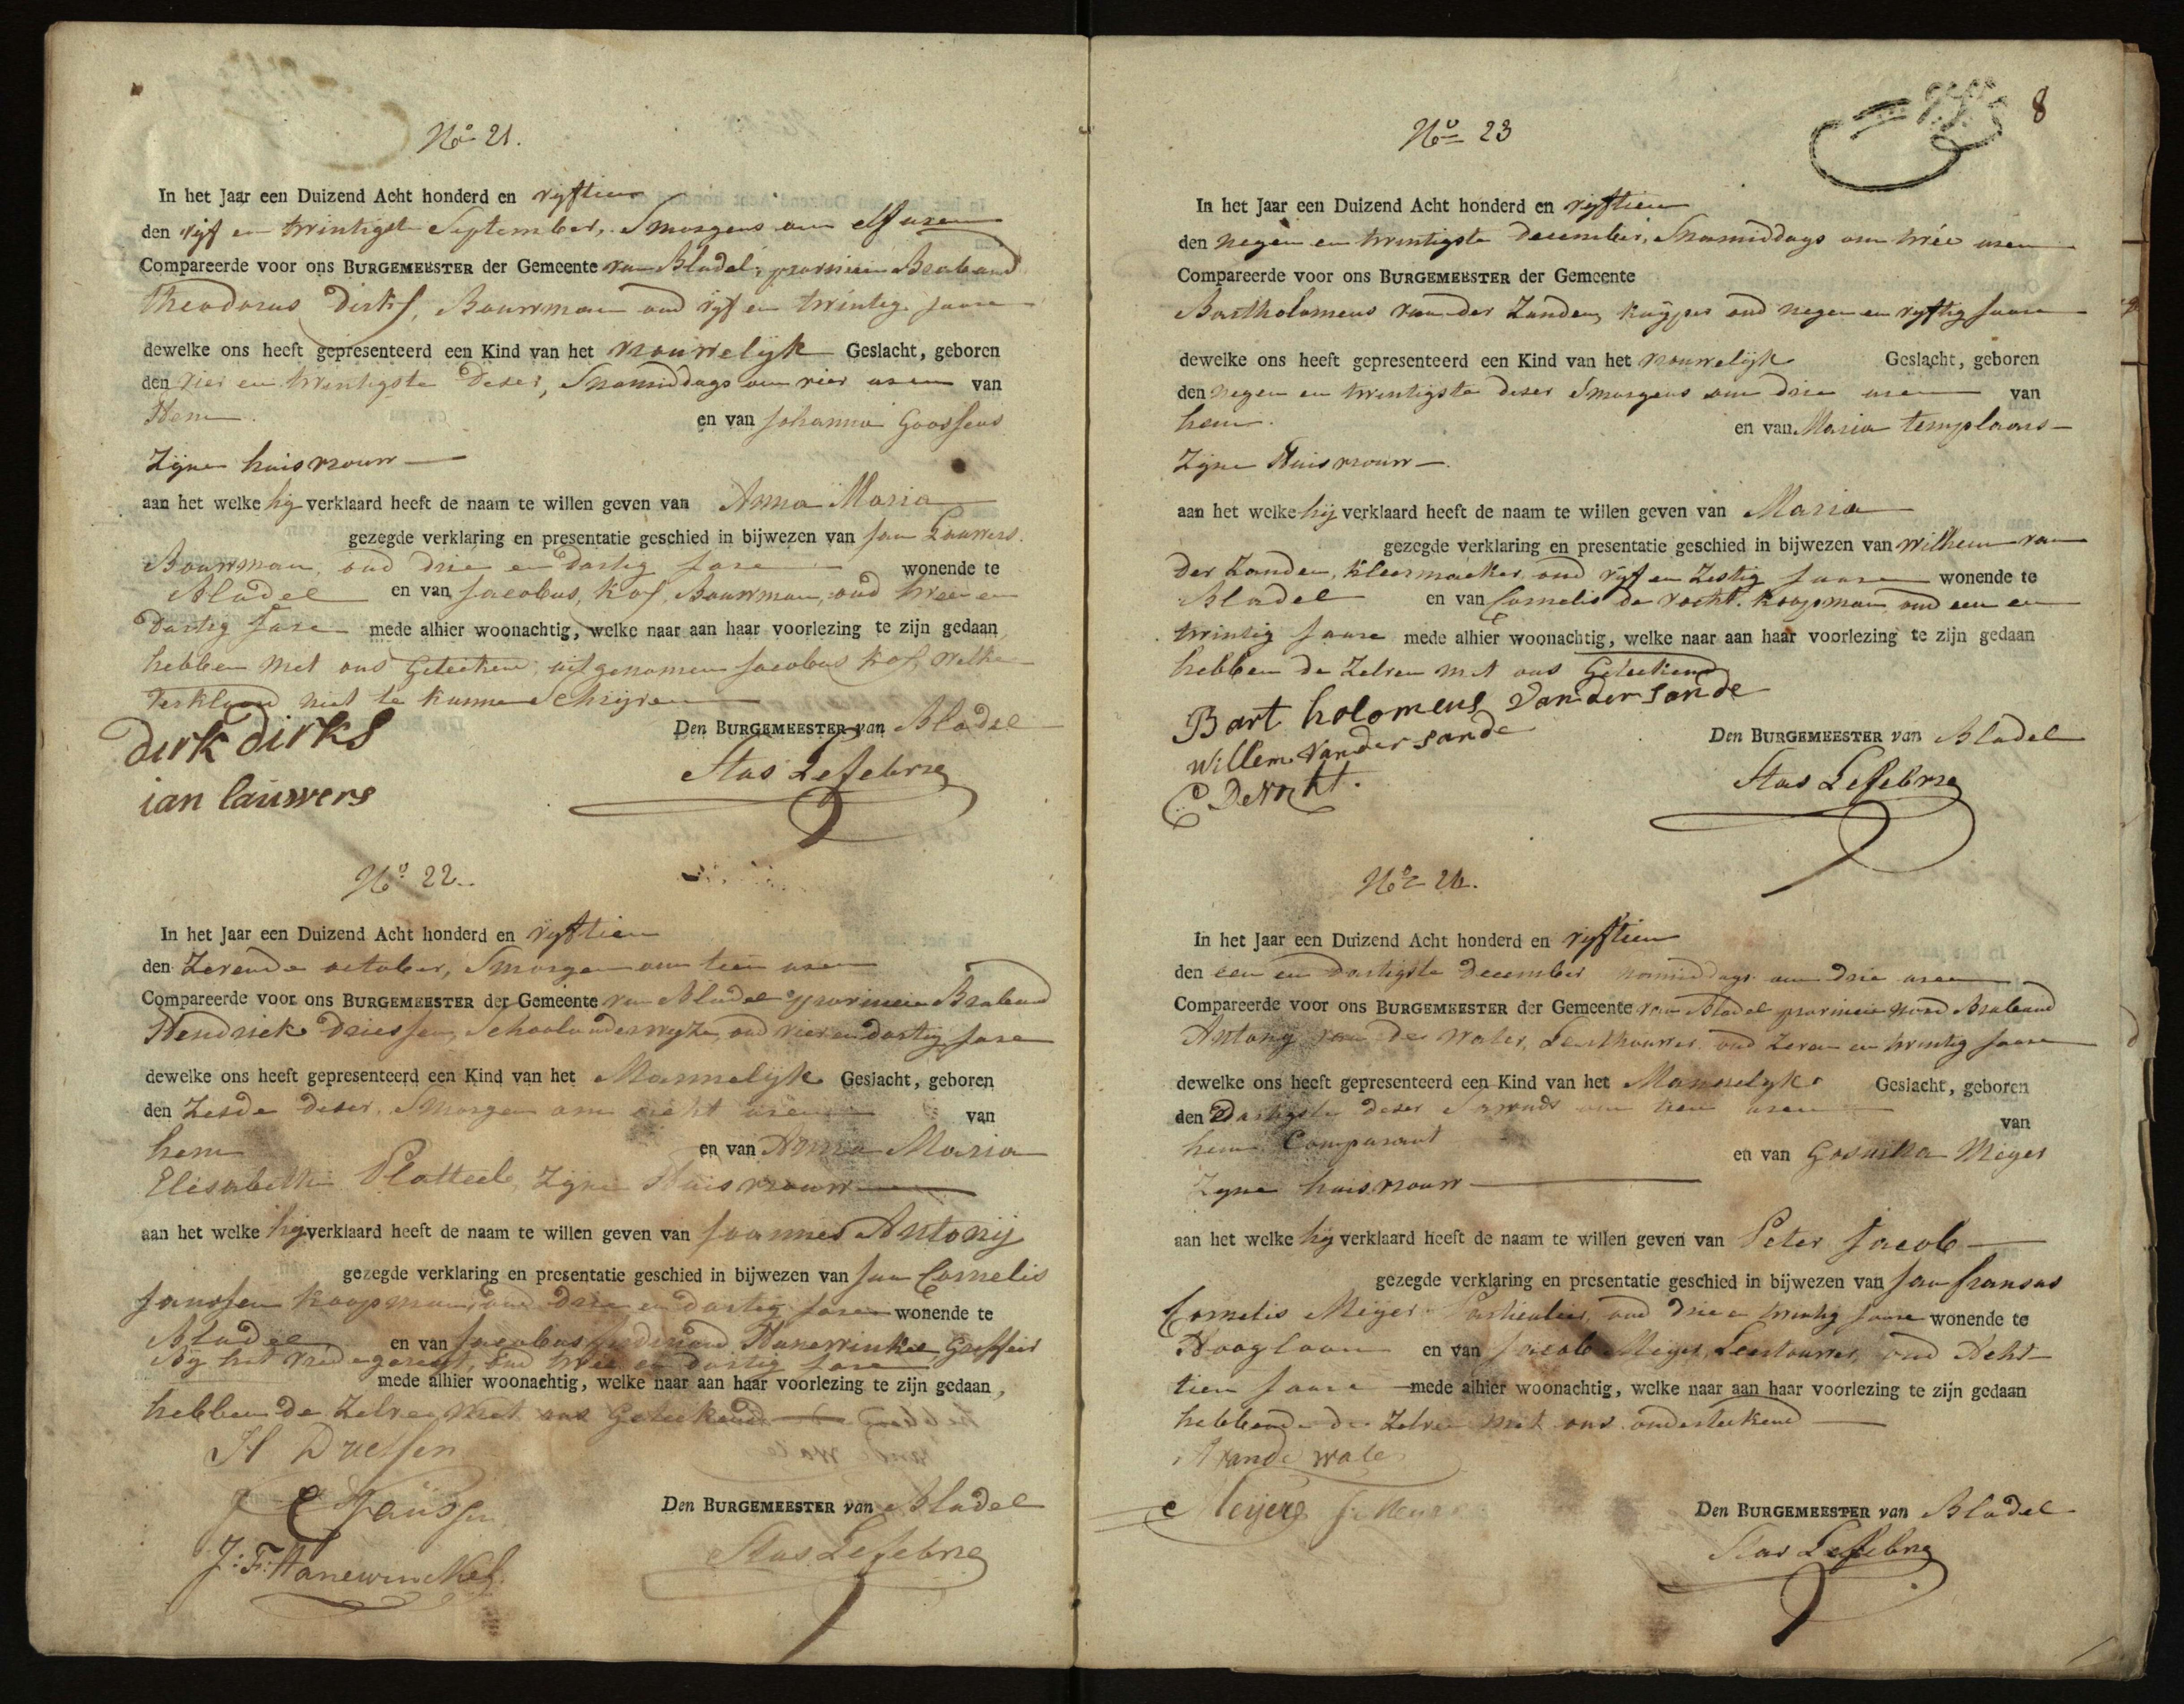 No 21.
In het Jaar een Duizend Acht honderd en vyftien
den vyf en twintigste September, Smorgens om elf uren
Compareerde voor ons BURGEMEESTER der Gemeente van Bladel, provincie Braband
Theodorus Dirks, Bouwman oud vyf en twintig Jaare
dewelke ons heeft gepresenteerd een Kind van het vrouwelyk Geslacht, geboren
den vier en twintigste deser, Snamiddags om vier uren van
Hem en van Johanna Goossens
Zyne huisvrouw
aan het welke hy verklaard heeft de naam te willen geven van Anna Maria
gezegde verklaring en presentatie geschied in bijwezen van Jan Lauwers
Bouwman, oud drie en dartig Jare wonende te
Bladel en van Jacobus Kof, Bouwman, oud twee en
dartig Jare mede alhier woonachtig, welke naar aan haar voorlezing te zijn gedaan
hebben met ons Geteekent, uitgenomen Jacobus Kof, welke
verklaard niet te kunne Schryven
Den BURGEMEESTER van Bladel
dirk dirks
Stas Lefebvre
ian lauwers
No 22.
In het Jaar een Duizend Acht honderd en vyftien
den Zevende october, Smorgen om tien uren
Compareerde voor ons BURGEMEESTER der Gemeente van Bladel provincie Braband
Hendriek Driessen, Schoolonderwyze, oud vier en dartig Jare
dewelke ons heeft gepresenteerd een Kind van het Mannelyk Geslacht, geboren
den Zesde deser, Smorgen om acht uren van
hem en van Anna Maria
Elisabeth Plotteel, Zyne Huisvrouw
aan het welke hy verklaard heeft de naam te willen geven van Joannes Antony
gezegde verklaring en presentatie geschied in bijwezen van Jan Cornelis
Janssen koopman, oud drie en dartig Jaren wonende te
Bladel en van Jacobus Ferdinand Hanewinkel Greffier
By het vredegeregt, oud twee en dartig Jare
mede alhier woonachtig, welke naar aan haar voorlezing te zijn gedaan,
hebben de Zelve met ons Geteekend
H Driessen
J C Janssen
Den BURGEMEESTER van Bladel
J: F: Hanewinckel
Stas Lefebvre
8
No 23
In het Jaar een Duizend Acht honderd en vyftien
den negen en twintigste december, Snamiddags om twée uren
Compareerde voor ons BURGEMEESTER der Gemeente
Bartholomeus van der Zanden, kuyper oud negen en vyftig Jaare
dewelke ons heeft gepresenteerd een Kind van het vrouwelyk Geslacht, geboren
den negen en twintigste deser Smorgens om drie uren van
hem en van Maria templaars
Zyne Huisvrouw
aan het welke hij verklaard heeft de naam te willen geven van Maria
gezegde verklaring en presentatie geschied in bijwezen van Wilhem van
der Zanden, kleermaeker, oud vyf en Zestig Jaare wonende te
Bladel en van Cornelis de vocht. koopman oud een en
twintig Jaare mede alhier woonachtig, welke naar aan haar voorlezing te zijn gedaan
hebben de Zelven met ons Geteekend
Bart holomeus van der sande
willem van der sande
Den BURGEMEESTER van Bladel
C De Vocht.
Stas Lefebvre
No 24.
In het Jaar een Duizend Acht honderd en vyftien
den een en dartigste december namiddags om drie uren
Compareerde voor ons BURGEMEESTER der Gemeente van Bladel provincie Noord Braband
Antony van de Water, Leerthouwer oud Zeven en twintig Jaare
dewelke ons heeft gepresenteerd een Kind van het Mannelyk Geslacht, geboren
den dartigste deser Savonds om tien uren van
hem Comparant en van Gosuina Meyer
Zyne huisvrouw
aan het welke hy verklaard heeft de naam te willen geven van Peter Jacob
gezegde verklaring en presentatie geschied in bijwezen van Jan fransus
Cornelis Meyer Particulier, oud drie en twintig Jaare wonende te
Hoogloon en van Jacob Meyer, Leertouwer, oud Acht
tien Jaare mede alhier woonachtig, welke naar aan haar voorlezing te zijn gedaan
hebbende de Zelve met ons onderteekend
A van de wate
C Meijer
Den BURGEMEESTER van Bladel
Stas Lefebvre